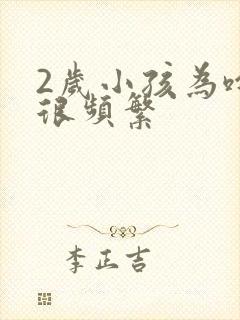 2歲小孩為
很頻繁
李正吉